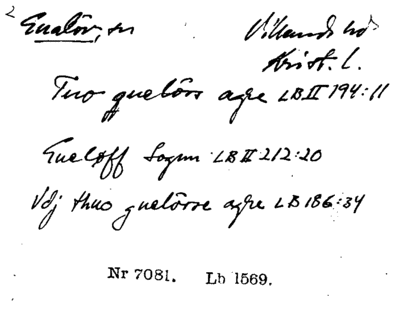 2 Gualöv, sn Villands hd
Krist. l.
Tuo guelörs agre LB II 194:11
Gueloff Sognn LB II 212:20
Vdj thuo guelörse agre LB 186:34
Nr 7081. Lb 1569.